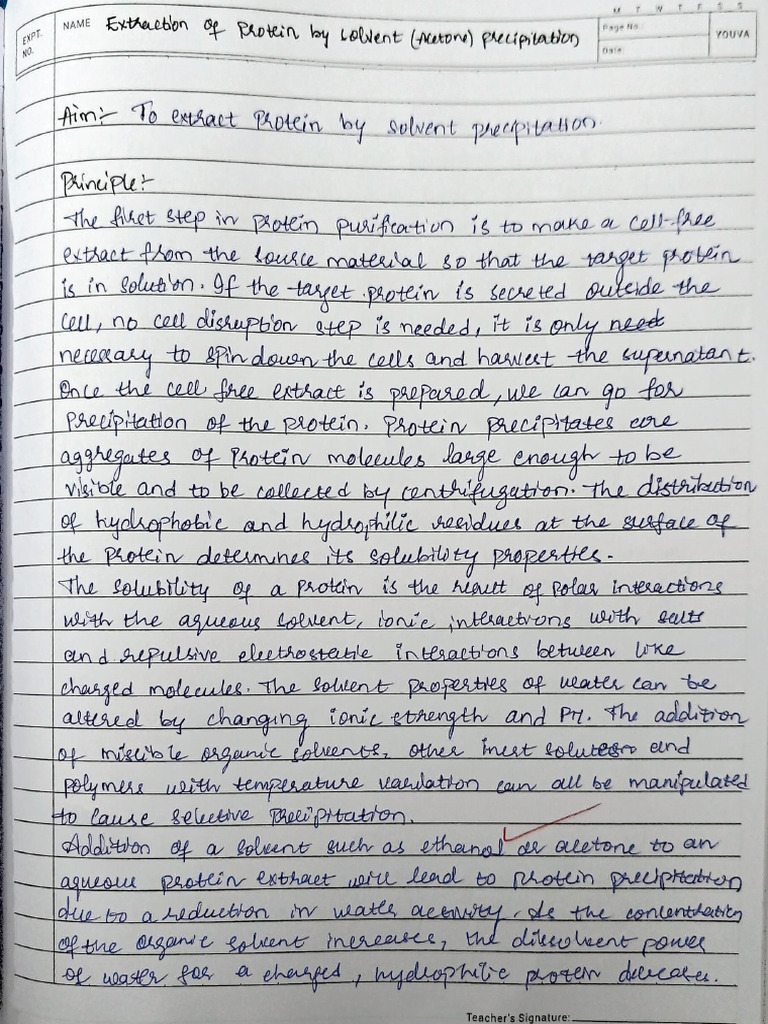 M T W T F S S
EXPT. NO. NAME Extraction of Protein by solvent (Acetone) precipitation
Page No.:
Date:
YOUVA
Aim:- To extract Protein by solvent precipitation.
Principle:-
The first step in protein purification is to make a cell-free
extract from the source material so that the target protein
is in solution. If the target protein is secreted outside the
cell, no cell disruption step is needed, it is only need
necessary to spin down the cells and harvest the supernatant.
Once the cell free extract is prepared, we can go for
precipitation of the protein. Protein precipitates are
aggregates of Protein molecules large enough to be
visible and to be collected by centrifugation. The distribution
of hydrophobic and hydrophilic residues at the surface of
the protein determines its solubility properties.
The solubility of a protein is the result of polar interactions
with the aqueous solvent, ionic interactions with salts
and repulsive electrostatic interactions between like
charged molecules. The solvent properties of water can be
altered by changing ionic strength and PH. The addition
of miscible organic solvents, other inert and
polymers with temperature variation can all be manipulated
to cause selective precipitation.
Addition of a solvent such as ethanol or acetone to an
aqueous protein extract will lead to protein precipitation
due to a reduction in water activity. As the concentration
of the organic solvent increases, the dissolvent power
of water for a charged, hydrophilic protein decreases.
Teacher's Signature: